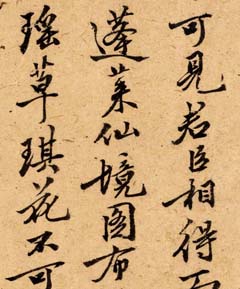 可見君臣相得
蓬萊仙境圖布
瑶草琪花不可